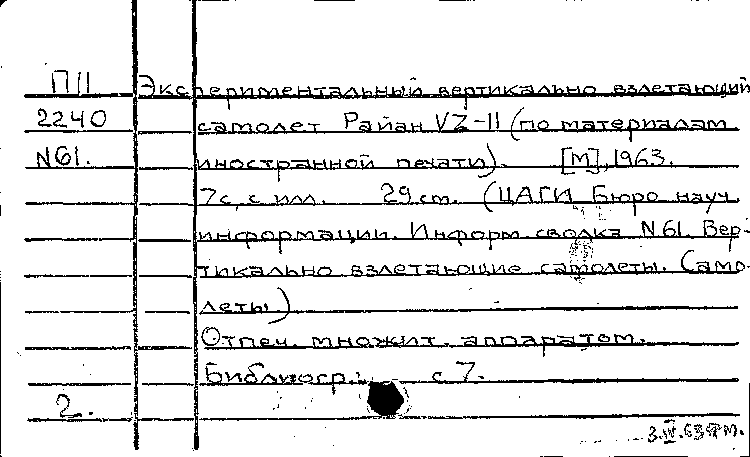 П11 Экспериментальный вертикально взлетающий
2240 самолет Райан VZ-11 (по материалам
N61. иностранной печати). [М], 1963.
7с, с илл. 29 см. (ЦАГИ. Бюро науч.
информации. Информ сводка N61. Вер-
тикально взлетающие самолеты. (Само-
леты.)
Отпеч. множит. аппаратом.
Библиогр.: с 7.
2.
3.IV.63